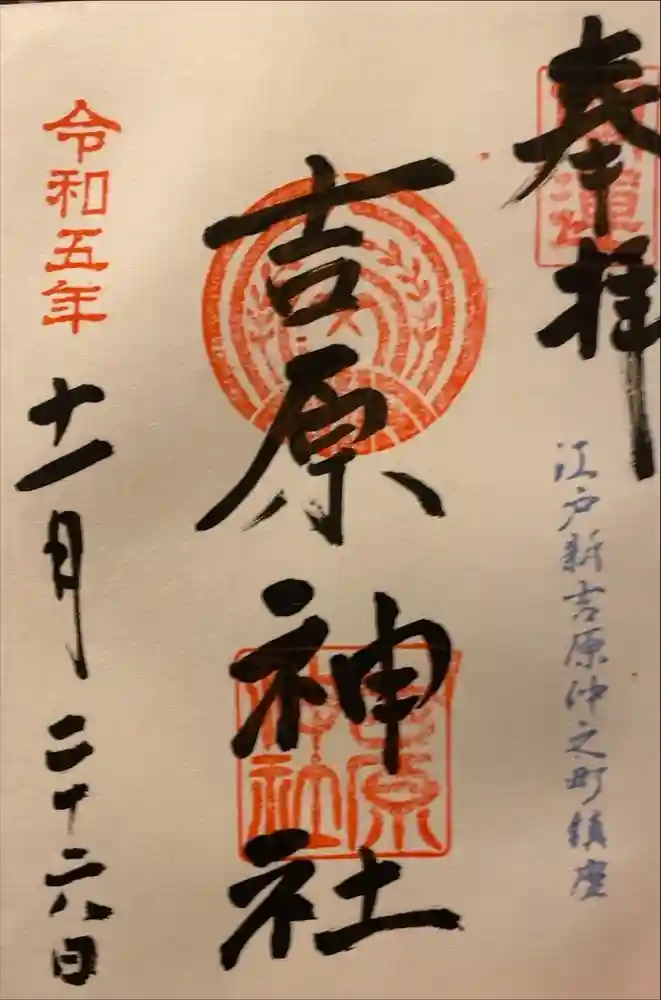 奉拝
開運
江戸新吉原仲之町鎮座
吉原神社
吉原
神社
令和五年
十一月二十六日